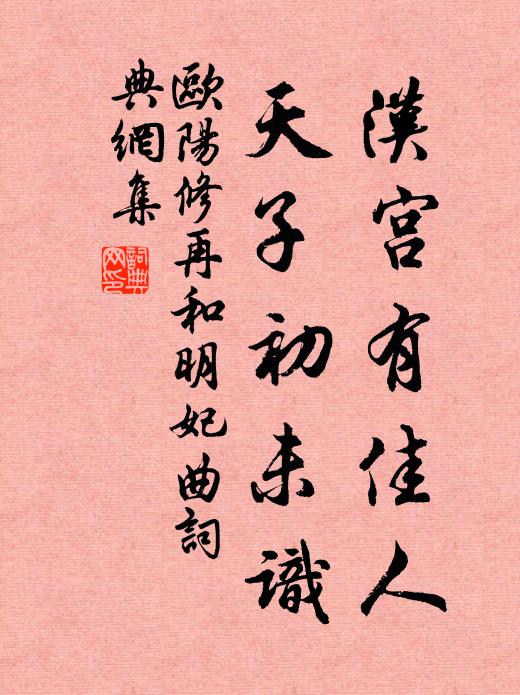 漢宮有佳人
天子初未識
歐陽修再和明妃曲詞
典網集
詞典
网印